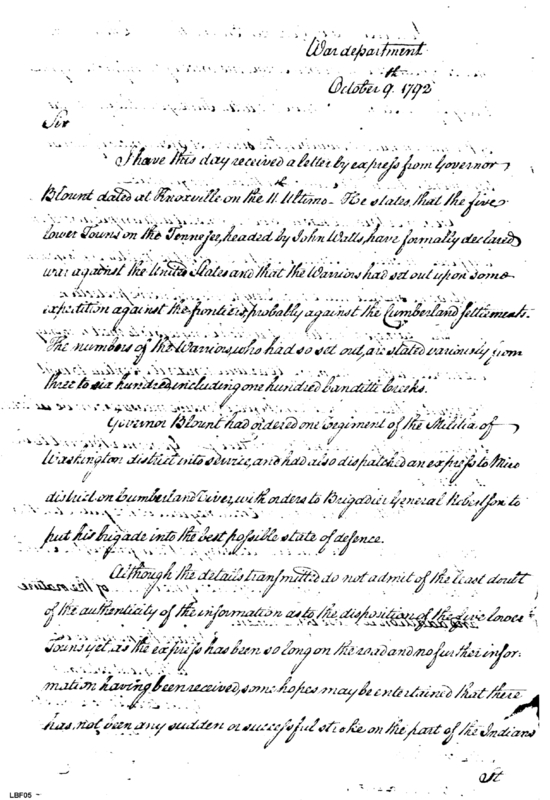 War department
October 9th. 1792
Sir
I have this day received a letter by express from Governor
Blount dated at Knoxville on the 11th. Ultimo. He states, that the five
lower Towns on the Tennessee, headed by John Watts, have formally declared
war against the United States and that the Warriors had set out upon some
expedition against the frontiers probably against the Cumberland settlements.
The numbers of the Warriors, who had so set out, are stated variously from
three to six hundred, including one hundred banditti Creeks.
Governor Blount had ordered one regiment of the Militia of
Washington district into service, and had also dispatched an express to Miro
district on Cumberland River, with orders to Brigadier General Robertson to
put his brigade into the best possible state of defence.
Although the details transmitted do not admit of the least doubt
of the authenticity of the information as to the disposition of the five lower
Towns yet, as the express has been so long on the road and no further infor-
mation having been received, some hopes may be entertained that there
has, not been any sudden or successful stroke on the part of the Indians
LBF05 -